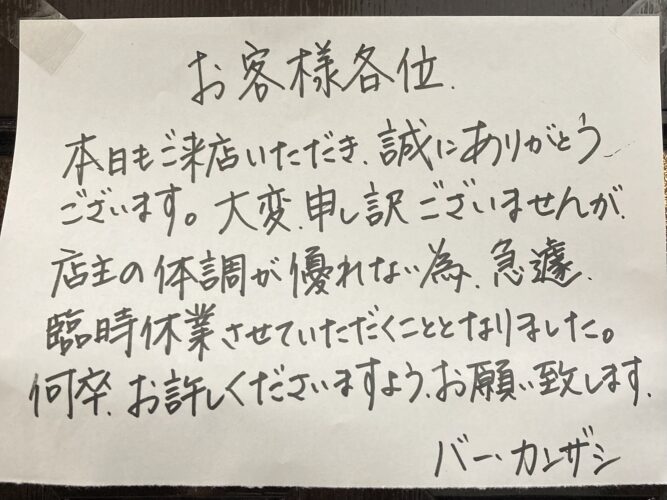 お客様各位.
本日もご来店いただき、誠にありがとう
ございます。大変、申し訳ございませんが、
店主の体調が優れない為、急遽、
臨時休業させていただくこととなりました。
何卒、お許しくださいますよう、お願い致します.
バー・カンザシ